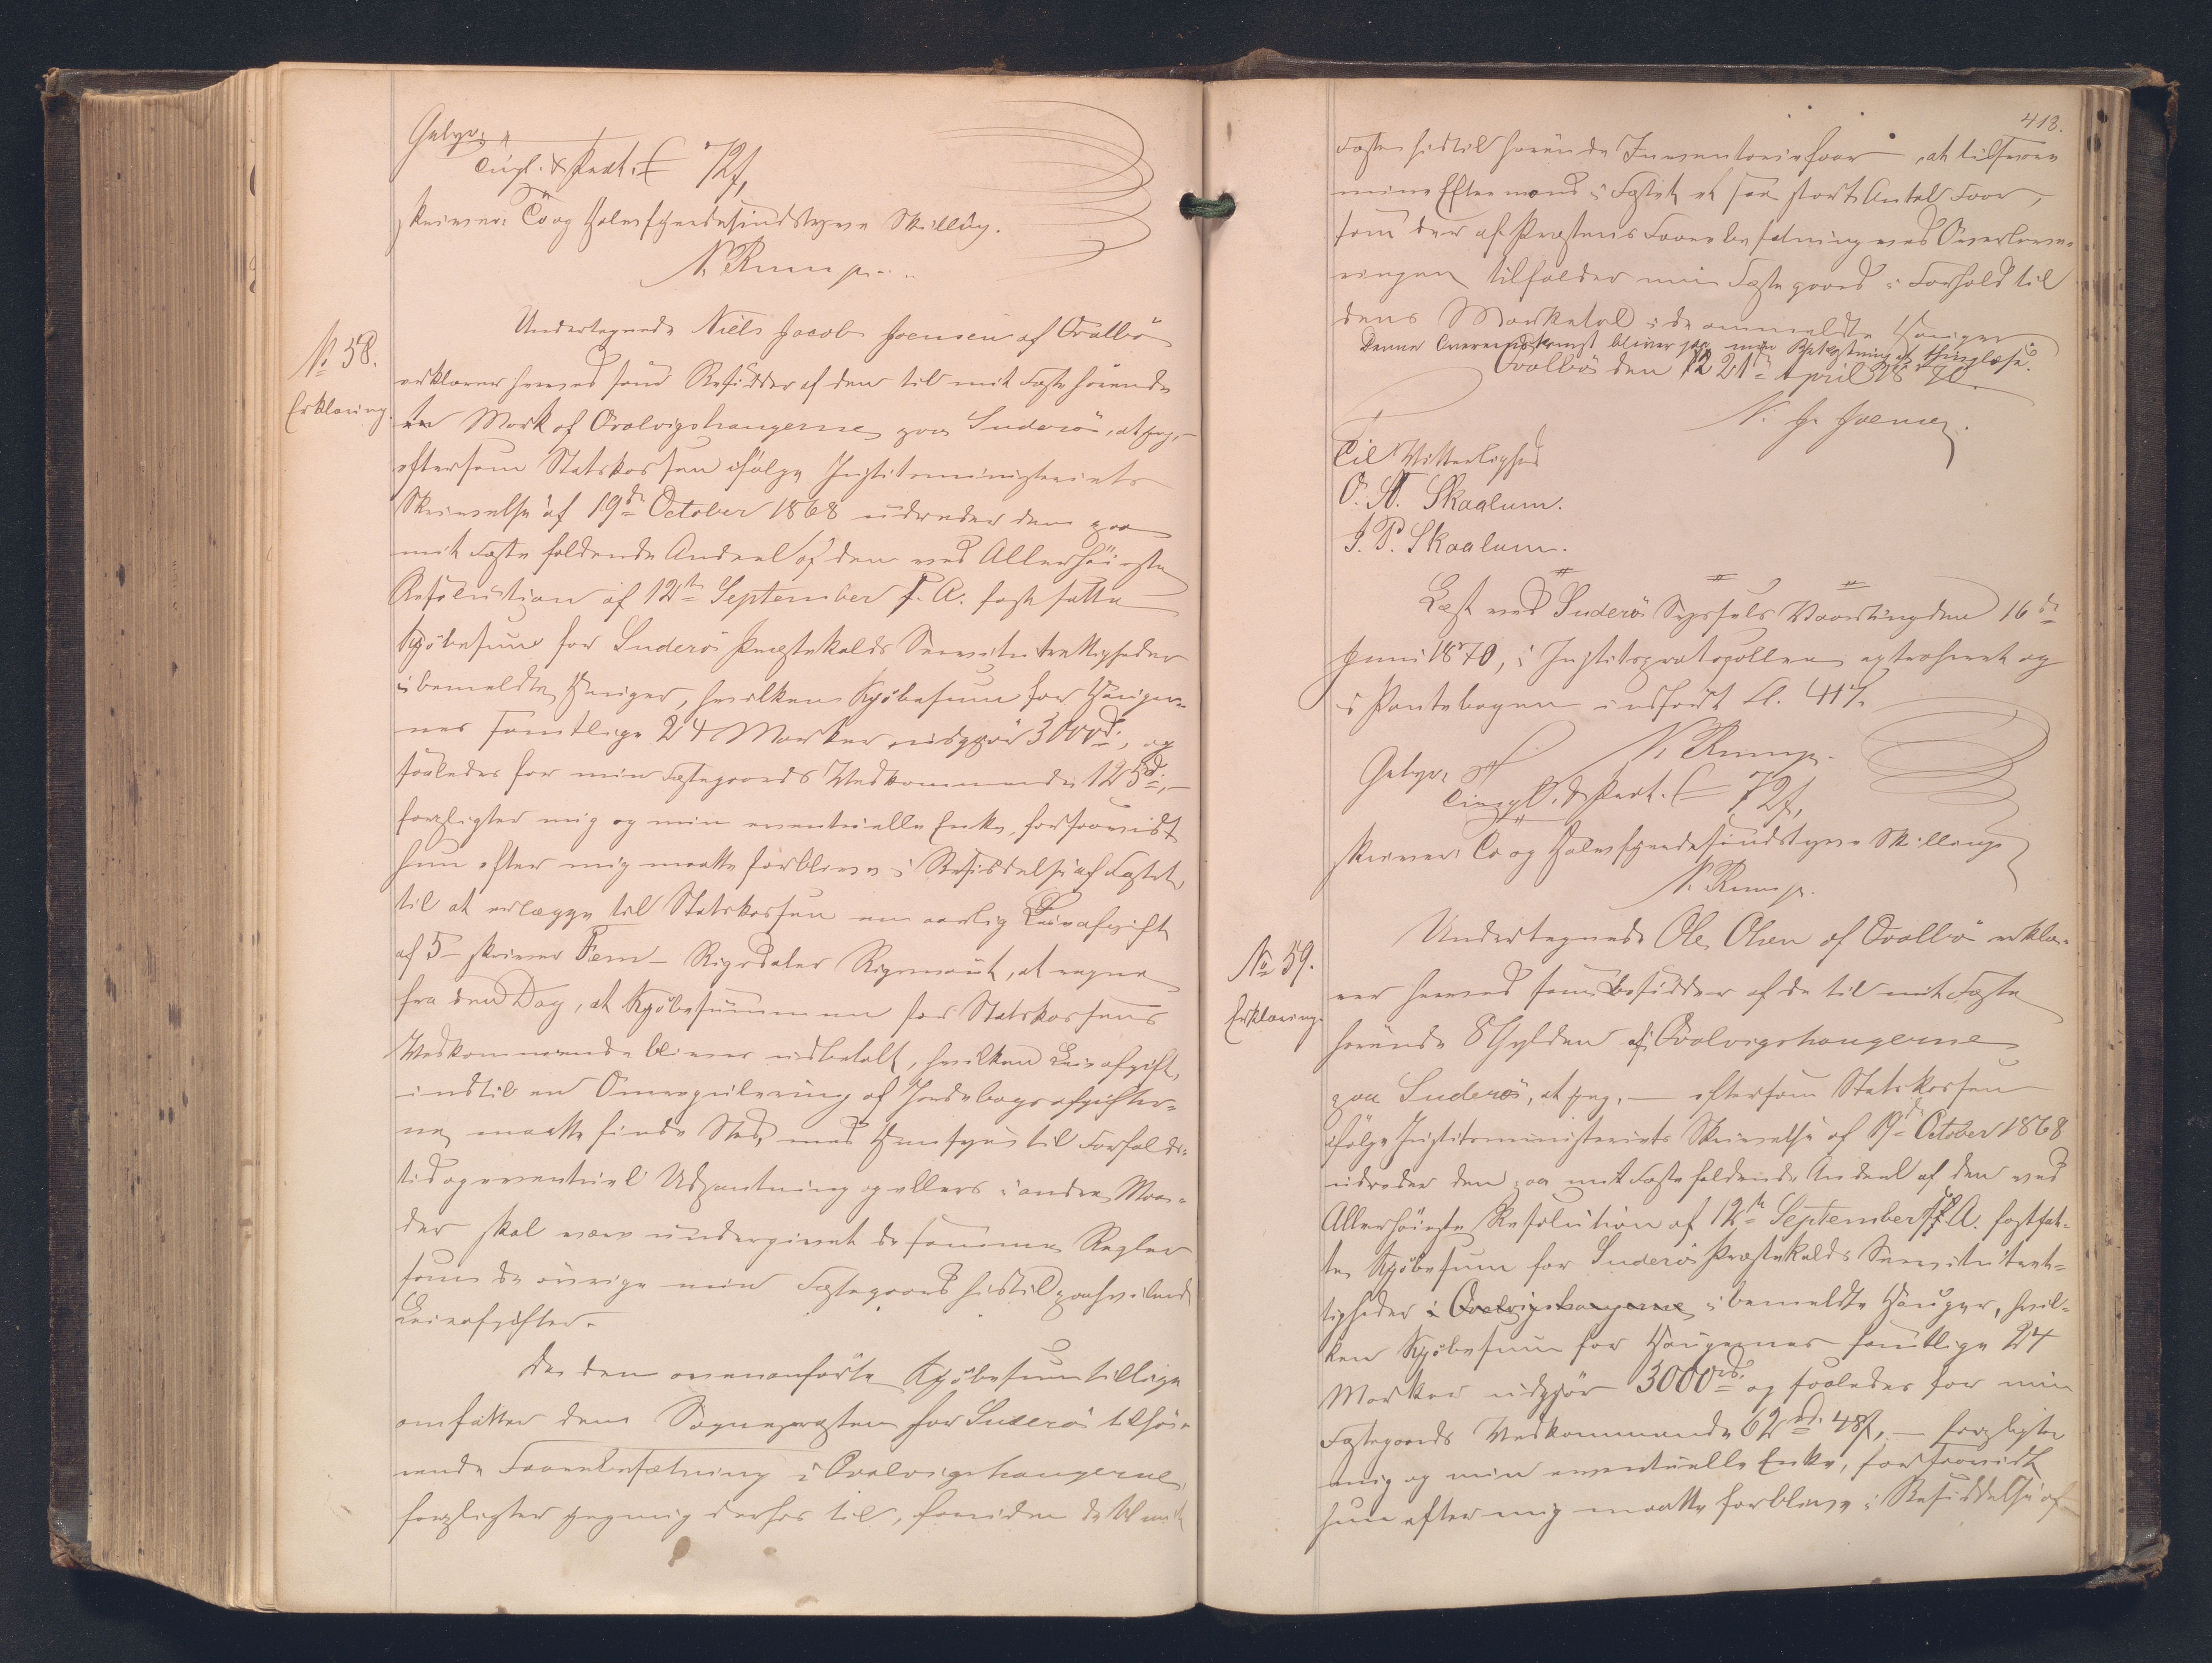 Gebyr:
Tingl. & Prot. 72 ß,
skriver To og Halvfjerdesindstyve Skilling.
N. Rump
No 58.
Erklæring.
Undertegnede Niels Jacob Joensen af Qvalbö
erklærer herved som Besidder af den til mit Fæste hörende
en Mark af Qvalvigshaugerne paa Suderö, at jeg,
eftersom Statskassen ifölge Justitsministeriets
Skrivelse af 19de October 1868 udreder den paa
mit Fæste faldende Andeel af den ved Allerhöieste
Resolution af 12te September f. A. fastsatte
Kjöbesum for Suderö Præstekalds Servitutrettigheder
i bemeldte Hauger, hvilken Kjöbesum for Hauger-
nes samtlige 24 Marker udgjör 3000 rd., og
saaledes for min Fæstegaards Vedkommende 125 rd.,
forpligter mig og min eventuelle Enke, forsaavidt
hun efter mig maatte forblive i Besiddelse af Fæstet,
til at erlægge til Statskassen en aarlig Leieafgift
af 5 skriver Fem Rigsdaler Rigsmönt, at regne
fra den Dag, at Kjöbesummen for Statskassens
Vedkommende bliver udbetalt, hvilken Leieafgift,
indtil en Omregulering af Jordebogsafgifter-
ne maatte finde Sted, med Hensyn til Forfalds-
tid og eventuel Udpantning og ellers i andre Maa-
der skal være undergivet de samme Regler
som de övrige min Fæstegaard hidtil paahvilende
Leieafgifter.
Da den ovenanförte Kjöbesum tillige
omfatter den Sognepræsten for Suderö tilhö-
rende Faarebesætning i Qvalvigshaugerne,
forpligter jeg mig derhos til, foruden de til mit
418.
Fæste hidtil hörende Inventariefaar, at tilsvare
mine Eftermænd i Fæstet et saa stort Antal Faar,
som der af Præstens Faarebesætning ved Overleve-
ringen tilfalder min Fæstegaard i Forhold til
dens Marketal i de ommeldte Hauger.
Denne Overeenskomst bliver paa min Bekostning at thinglæse.
Qvalbö den 21de April 1870.
N. J. Joensen.
Til Vitterlighed
O. N. Skaalum.
J. P. Skaalum.
Læst ved Suderö Syssels Vaarting den 16de
Juni 1870, i Justitsprotocollen extraheret og
i Pantebogen indfört fl. 417.
N. Rump.
Gebyr:
Tingl. & Prot. 72 ß,
skriver To og Halvfjerdesindstyve Skilling
N. Rump.
No 59.
Erklæring.
Undertegnede Ole Olsen af Qvalbö erklæ-
rer herved som Besidder af de til mit Fæste
hörende 8 Gylden af Qvalvigshaugerne
paa Suderö, at jeg, — eftersom Statskassen
ifölge Justitsministeriets Skrivelse af 19de October 1868
udreder den paa mit Fæste faldende Andeel af den ved
Allerhöieste Resolution af 12te September f. A. fastsat-
te Kjöbesum for Suderö Præstekalds Servitutret-
tigheder i Qvalvigshaugerne i bemeldte Hauger, hvil-
ken Kjöbesum for Haugernes samtlige 24
Marker udgjör 3000 rd. og saaledes for min
Fæstegaards Vedkommende 62 rd. 48 ß, — forpligter
mig og min eventuelle Enke, forsaavidt
hun efter mig maatte forblive i Besiddelse af